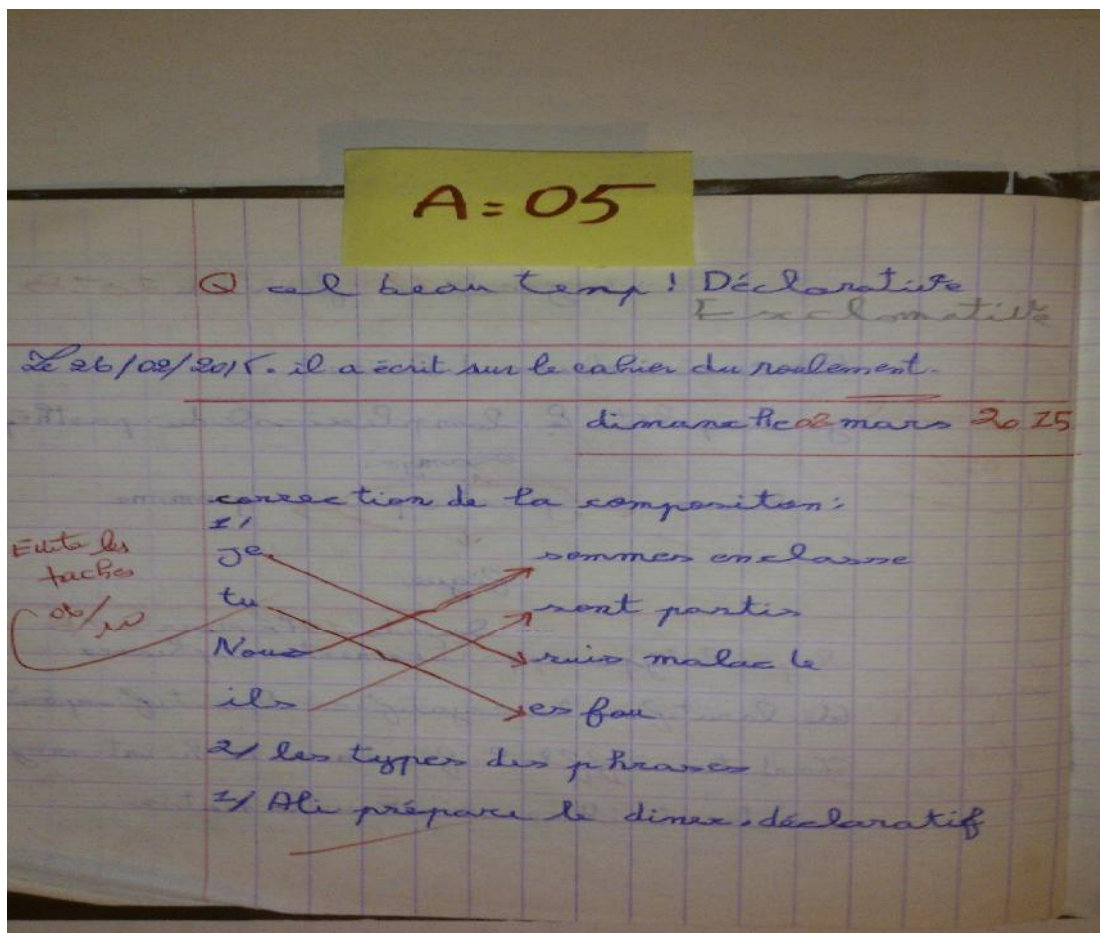 A = 05
Quel beau temp ! Déclarative
Exclamative
Le 26/02/2015. il a écrit sur le cahier du roulement.
dimanche 02 mars 2015
correction de la compositon :
1/
Evite les
taches
06/10
je sommes en classe
tu sont partis
Nous suis malade
ils es fou
2/ les types des phrases
1/ Ali prépare le diner. déclaratif